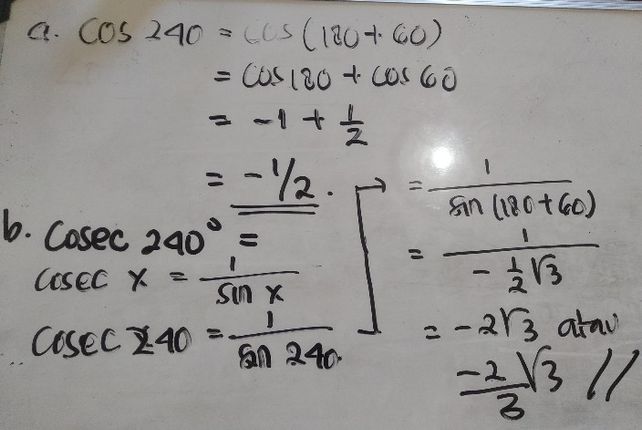 a. COS 240 = COS (180 + 60)
= COS 180 + COS 60
= -1 + 1/2
= -1/2.
b. Cosec 240° =
cosec x = 1/sin x
cosec 240 = 1/sin 240.
= 1/sin (180+60)
= 1/-1/2√3
= -2√3 atau
-2/3 √3 //